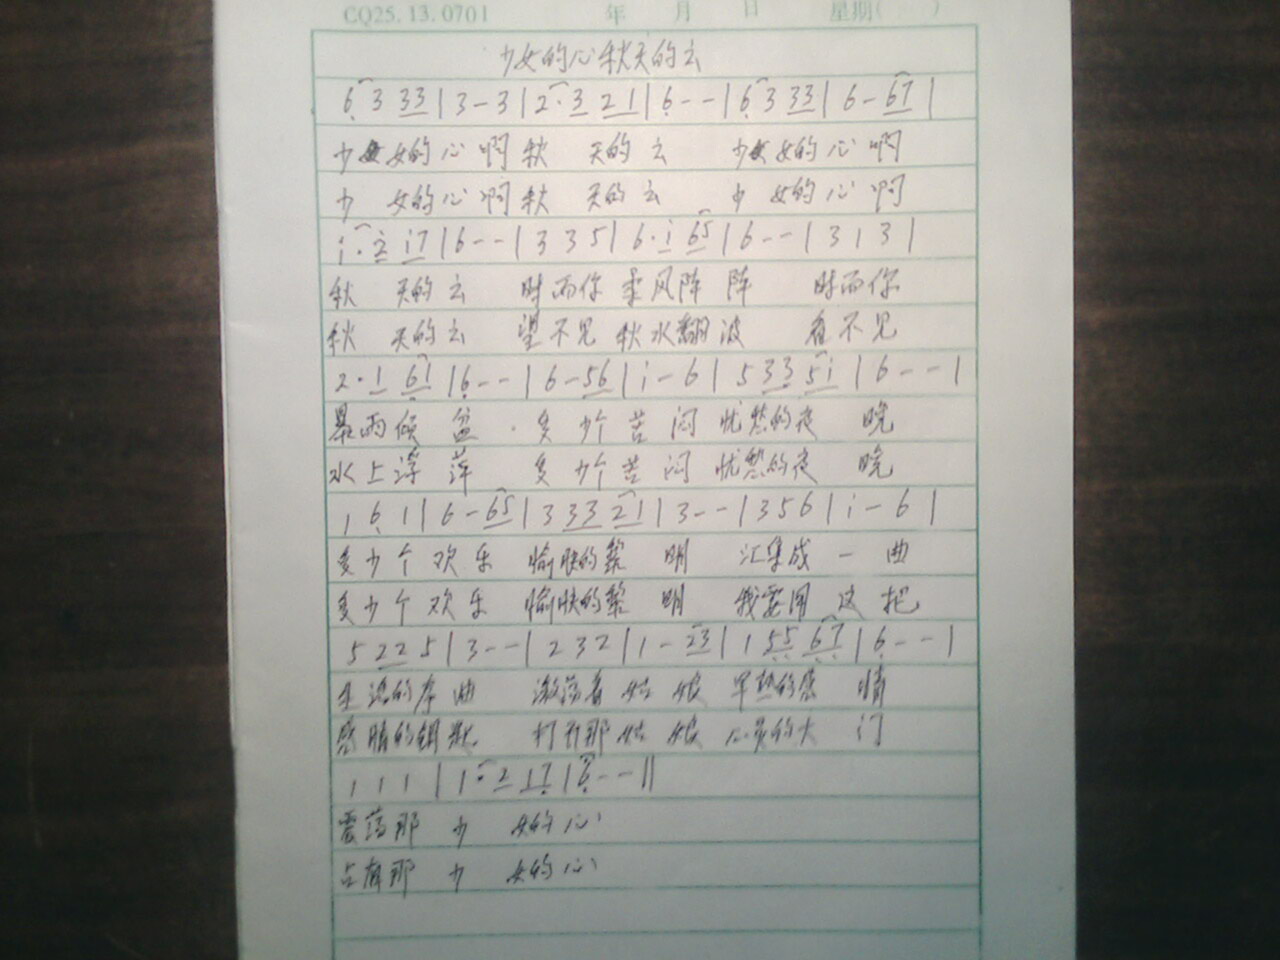 CQ25.13.0701 年 月 日 星期( )
少女的心秋天的云
6 3 33 | 3 - 3 | 2 · 3 21 | 6 - - | 6 3 33 | 6 - 67 |
少女女的心啊秋 天的云 少女女的心啊
少 女的心啊秋 天的云 少 女的心啊
i · 2 i7 | 6 - - | 3 3 5 | 6 · i 65 | 6 - - | 3 1 3 |
秋 天的云 时而你 柔风阵 阵 时而你
秋 天的云 望不见 秋水翻 波 看不见
2 · 1 61 | 6 - - | 6 - 56 | i - 6 | 5 33 5i | 6 - - |
暴雨倾 盆 · 多 少个 苦 闷 忧愁的夜 晚
水上浮 萍 多 少个 苦 闷 忧愁的夜 晚
1 6 1 | 6 - 65 | 3 33 21 | 3 - - | 3 5 6 | i - 6 |
多少个 欢 乐 愉快的黎 明 汇集成 一 曲
多少个 欢 乐 愉快的黎 明 我要用 这 把
5 22 5 | 3 - - | 2 3 2 | 1 - 23 | 1 55 67 | 6 - - |
生活的序 曲 激荡着 姑 娘 早熟的感 情
感情的钥 匙 打开那 姑 娘 心灵的大 门
1 1 1 | 1 · 2 17 | 6 - - ||
震荡那 少 女的心
占有那 少 女的心